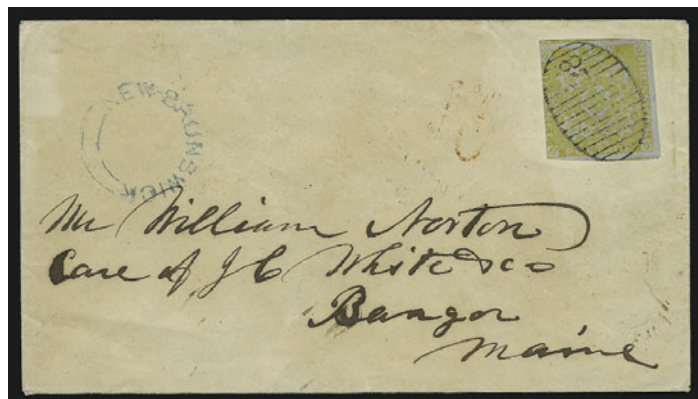 NEW-BRUNSWICK
Mr William Norton
Care of J C White & co
Bangor
Maine